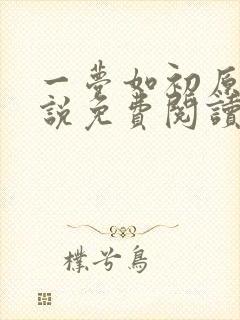 一夢如初原
說免費閱讀
樸兮鳥